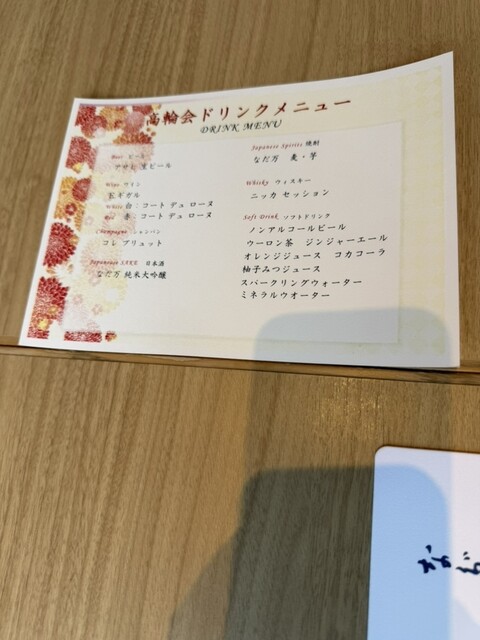 高輪会ドリンクメニュー
DRINK MENU
Beer ビール
アサヒ 生ビール
Wine ワイン
E.ギガル
White 白：コート デュ ローヌ
Red 赤：コート デュ ローヌ
Champagne シャンパン
コレ ブリュット
Japanease SAKE 日本酒
なだ万 純米大吟醸
Japanese Spirits 焼酎
なだ万 麦・芋
Whisky ウィスキー
ニッカ セッション
Soft Drink ソフトドリンク
ノンアルコールビール
ウーロン茶 ジンジャーエール
オレンジジュース コカコーラ
柚子みつジュース
スパークリングウォーター
ミネラルウオーター